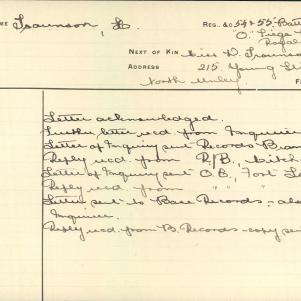 ME Traunson, L. REG. &c 54 & 55 Batt
"O" Siege
Royal
NEXT OF KIN Miss D. Traunson
ADDRESS 215 Young St
North Unley
Letter acknowledged.
Further letter recd from Inquirer
Letter of Inquiry sent Records Bran
Reply recd. from R/B., Mitch
Letter of Inquiry sent O.C., Fort La
Reply recd from " " "
Letter sent to Base Records - also
Inquirer.
Reply recd from B. Records - copy sen